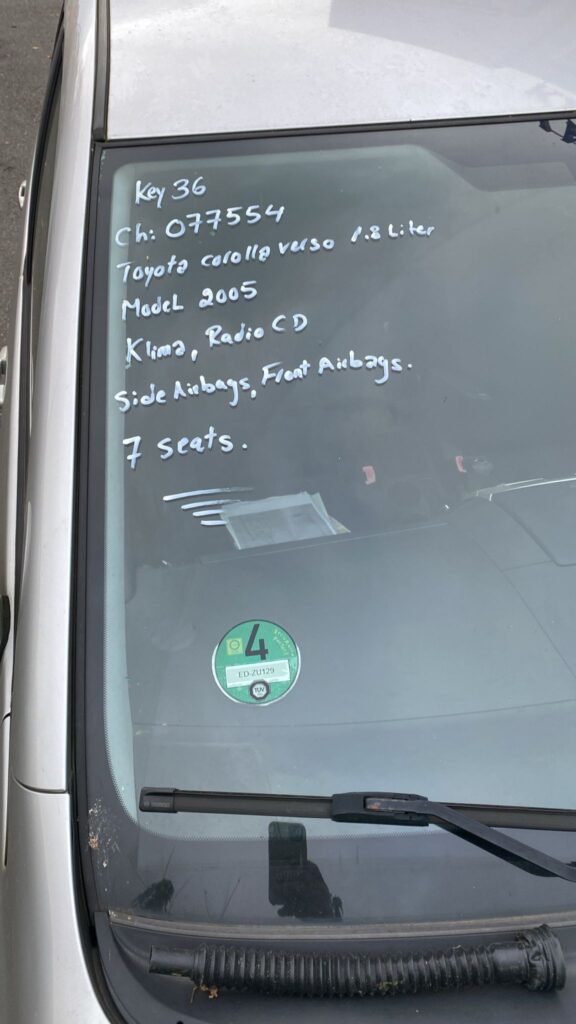 Key 36
Ch: 077554
Toyota corolla verso 1.8 Liter
Model 2005
Klima, Radio CD
Side Airbags, Front Airbags.
7 seats.
4
ED-ZU129
TÜV